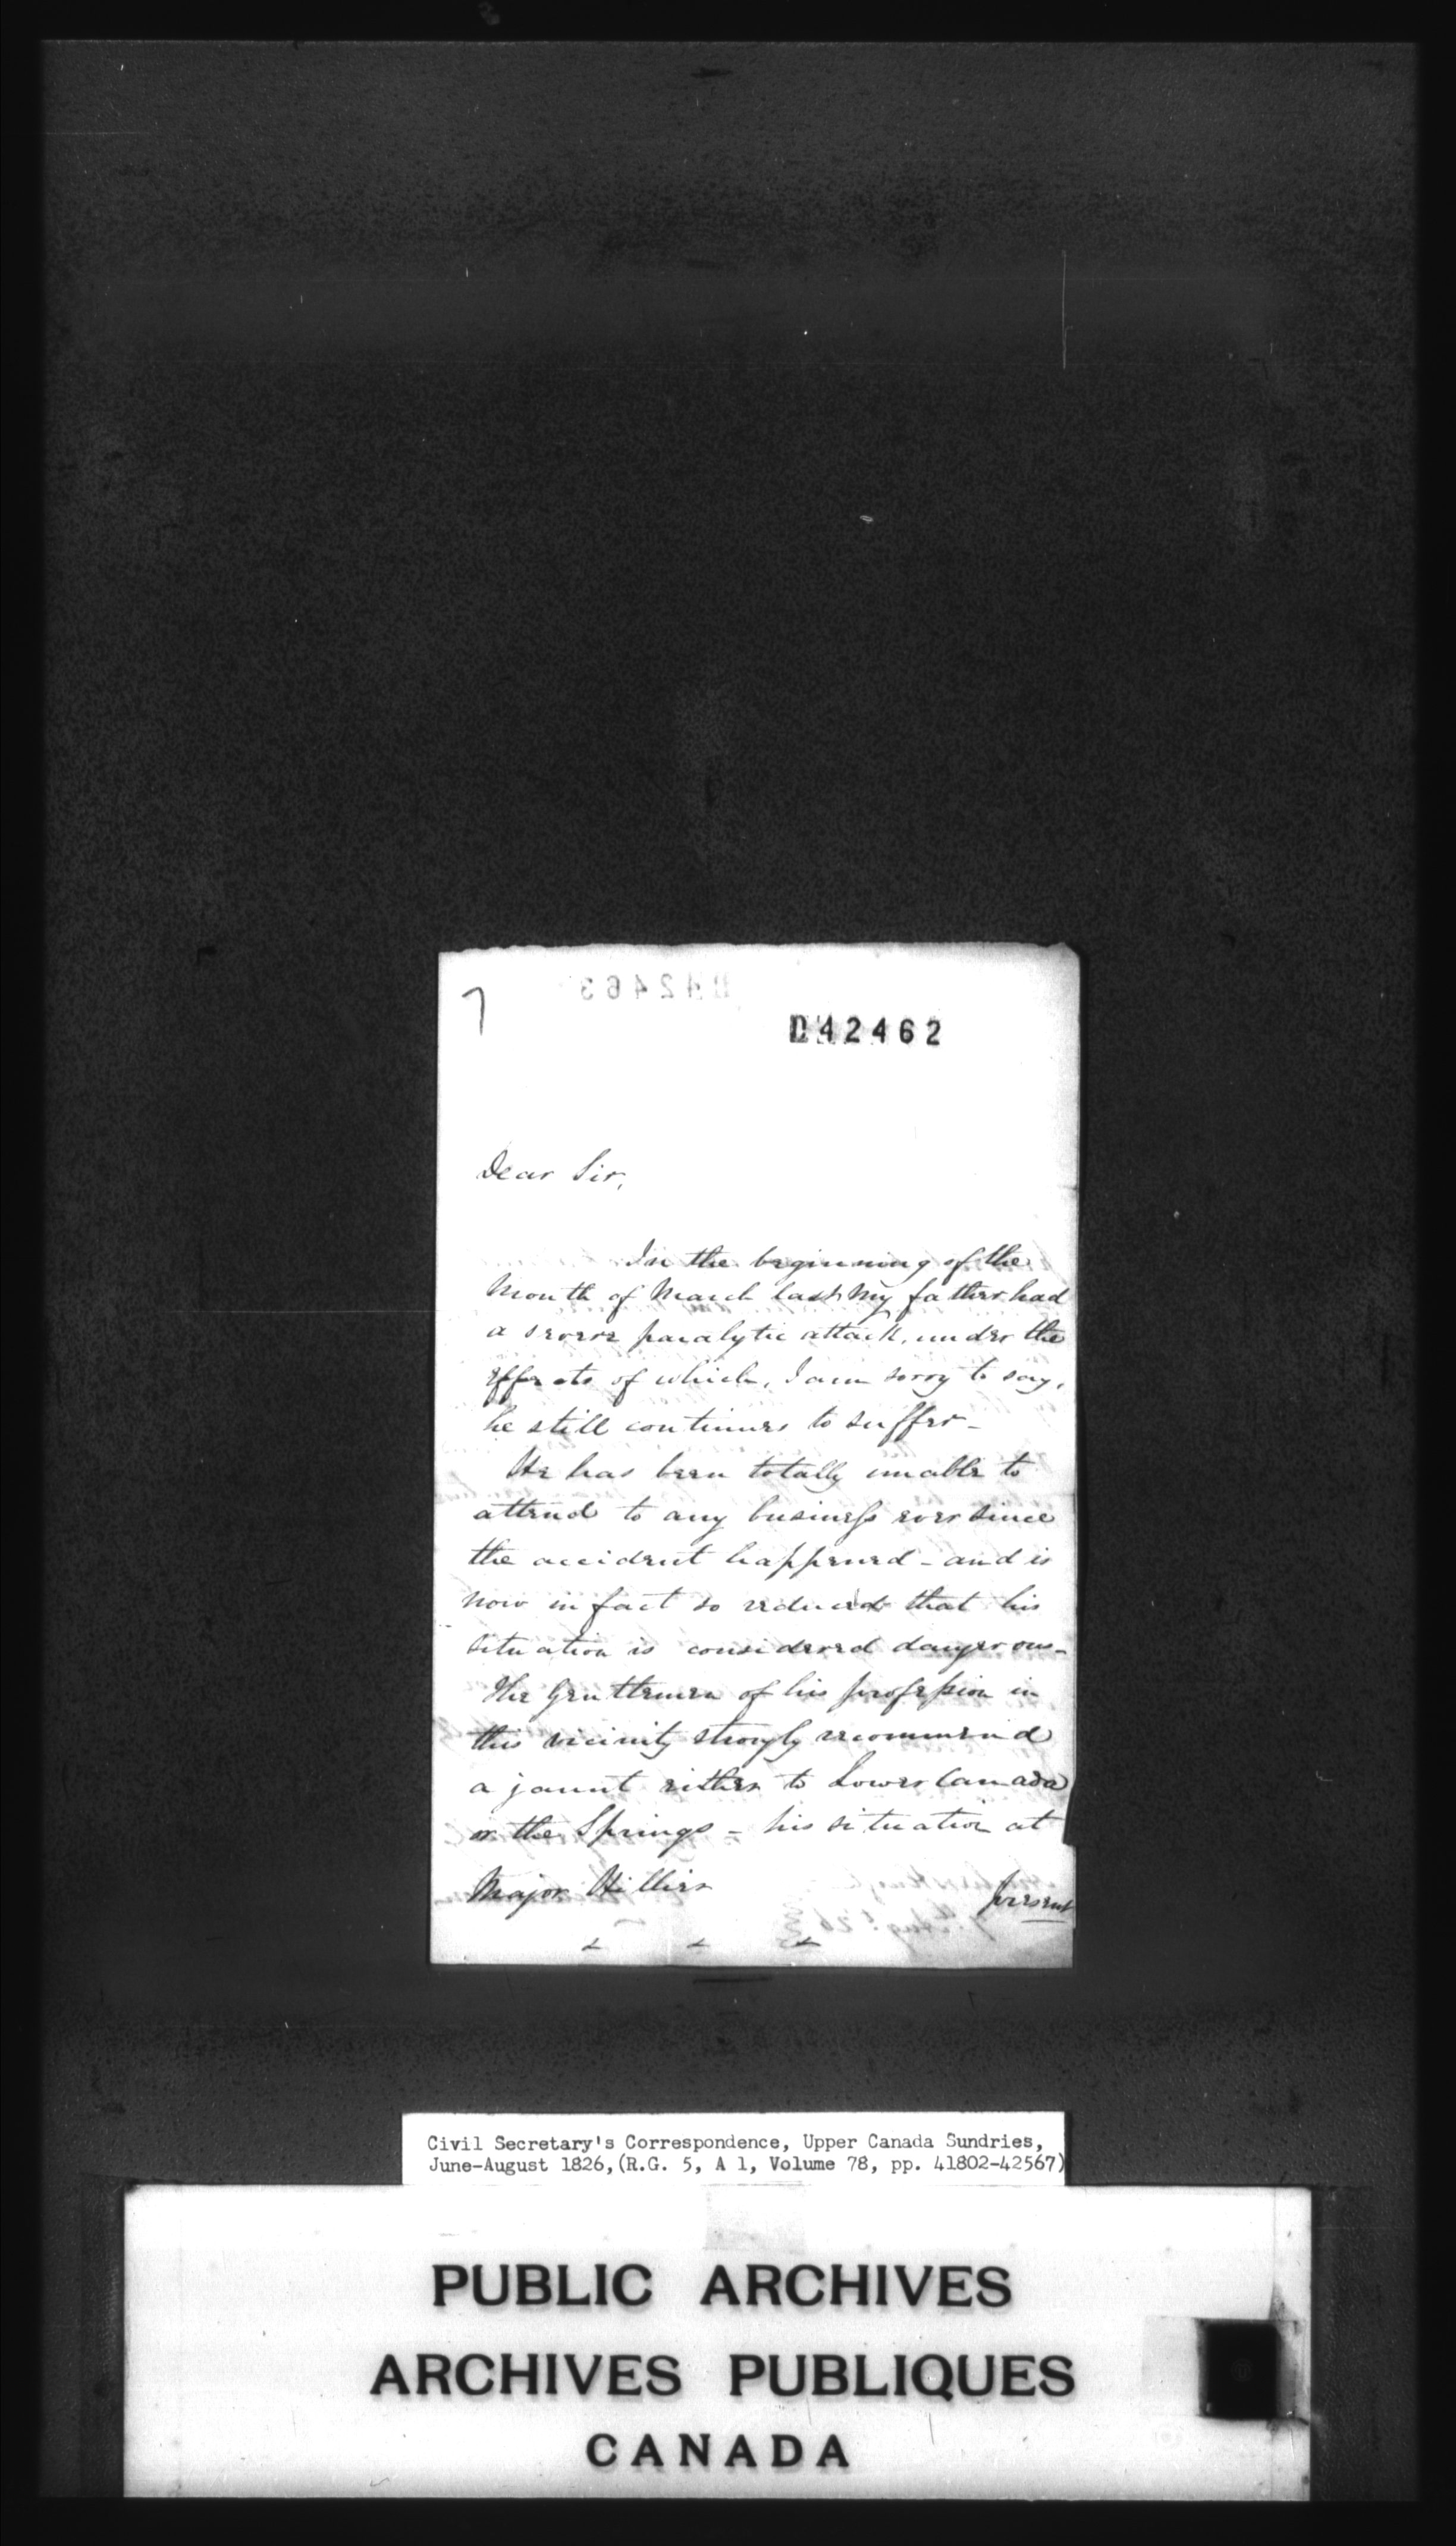 D42462
Dear Sir,
In the beginning of the
Month of March last My father had
a severe paralytic attack, under the
effects of which, I am sorry to say,
he still continues to suffer -
He has been totally unable to
attend to any business ever since
the accident happened - and is
now in fact so reduced that his
situation is considered dangerous -
The Gentlemen of his profession in
this vicinity strongly recommend
a jaunt either to Lower Canada
or the Springs - his situation at
Major Hillier
present
Civil Secretary's Correspondence, Upper Canada Sundries,
June-August 1826, (R.G. 5, A 1, Volume 78, pp. 41802-42567)
PUBLIC ARCHIVES
ARCHIVES PUBLIQUES
CANADA